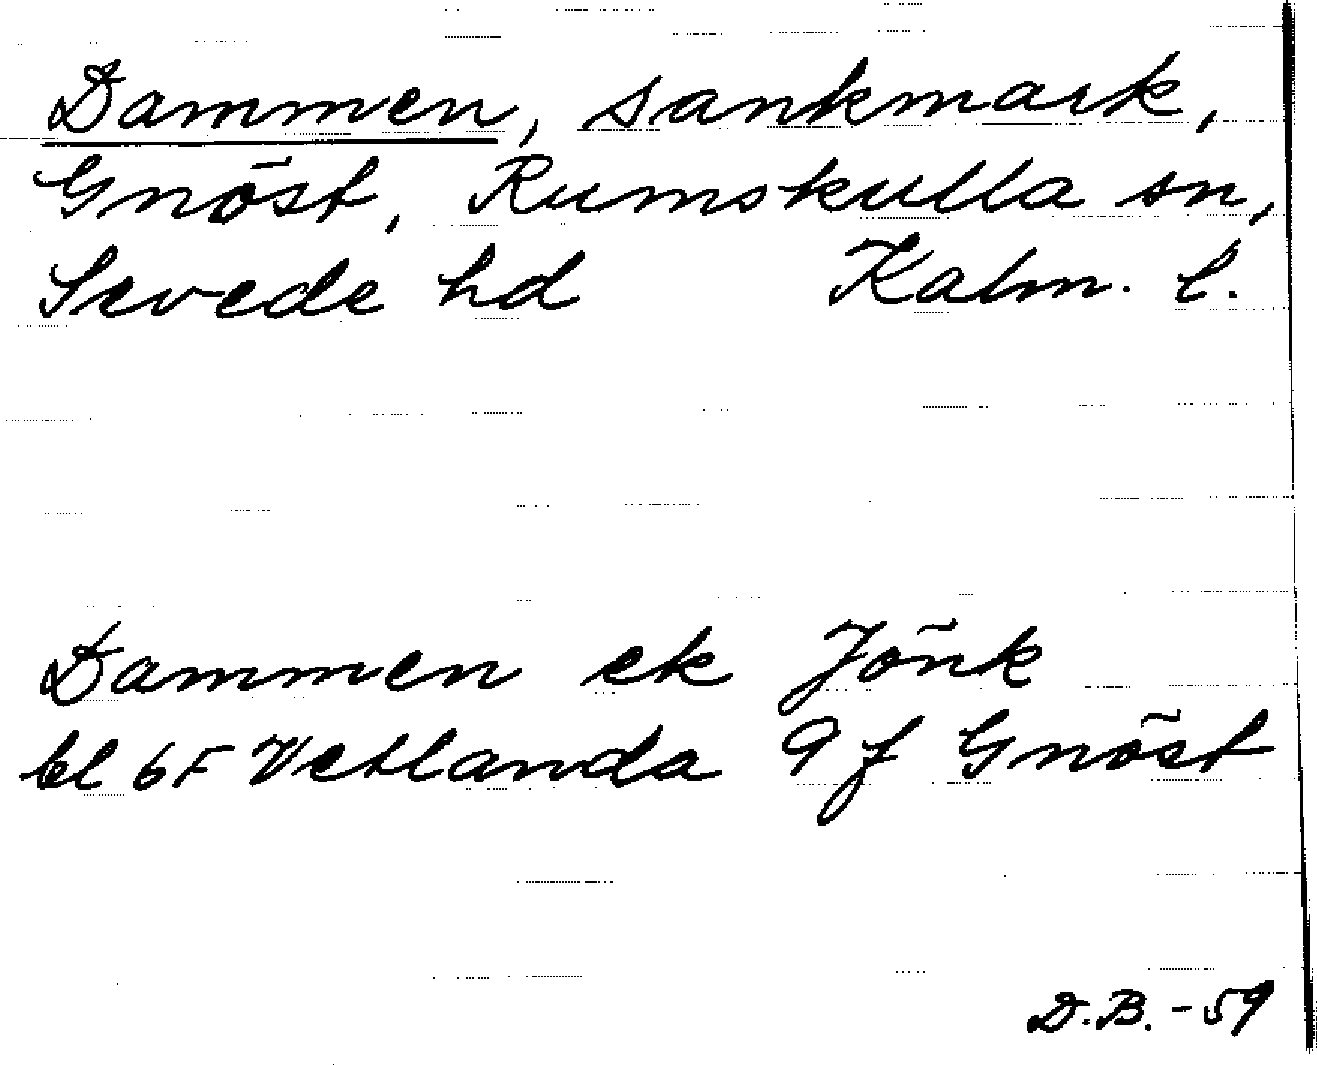 Dammen, sankmark,
Gnöst, Rumskulla sn,
Sevede hd Kalm. l.
Dammen ek Jönk
bl 6F Vetlanda 9 f Gnöst
D.B. - 59